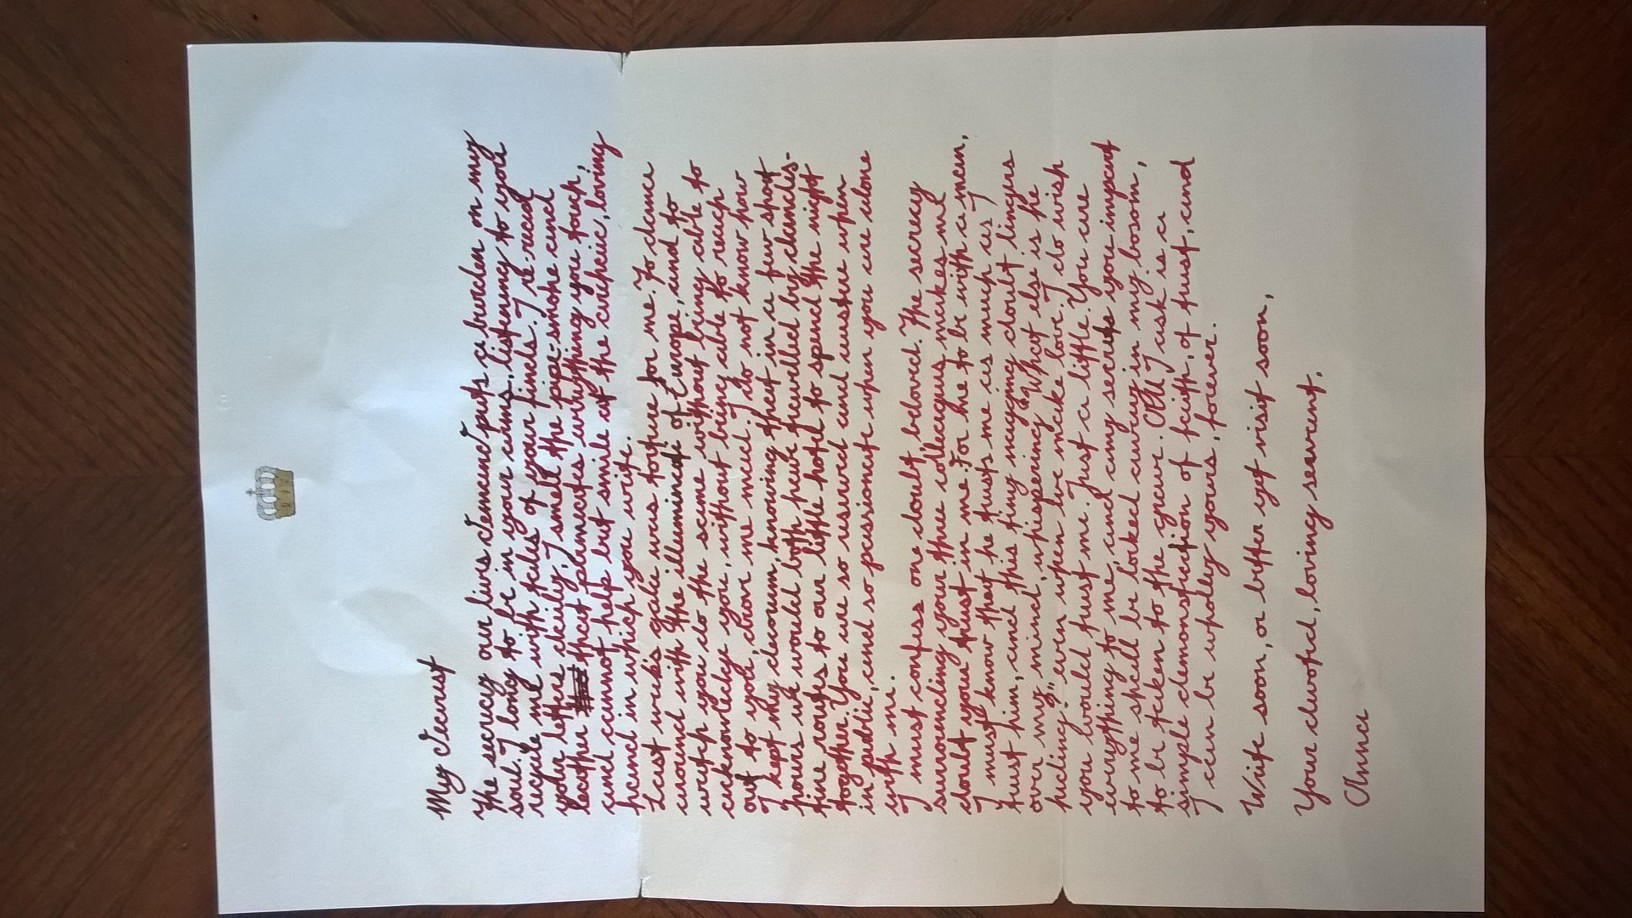 My Dearest
The secrecy our lives demand puts a burden on my
soul. I long to be in your arms, listening to you
regale me with tales of your finds. I re-read
your letters daily, I smell the pipe-smoke and
leather that permeates everything you touch,
and cannot help but smile at the archaic, loving
hand in which you write.
Last week's gala was torture for me. To dance
around with the illuminati of Europe, and to
watch you do the same without being able to
acknowledge you, without being able to reach
out to you, drove me mad. I do not know how
I kept my decorum, knowing that in a few short
hours we would both have travelled by clandes-
tine routes to our little hotel to spend the night
together. You are so reserved and austere when
in public, and so passionate when you are alone
with me.
I must confess one doubt, beloved. The secrecy
surrounding your three colleagues makes me
doubt your trust in me. For me to be with a man,
I must know that he trusts me as much as I
trust him, and this tiny nagging doubt lingers
over my mind, whispering "What else is he
hiding?", even when we make love. I do wish
you would trust me. Just a little. You are
everything to me, and any secrets you impart
to me shall be locked away in my bosom,
to be taken to the grave. All I ask is a
simple demonstration of faith, of trust, and
I can be wholly yours, forever.
Write soon, or better yet visit soon,
Your devoted, loving servant,
Anna